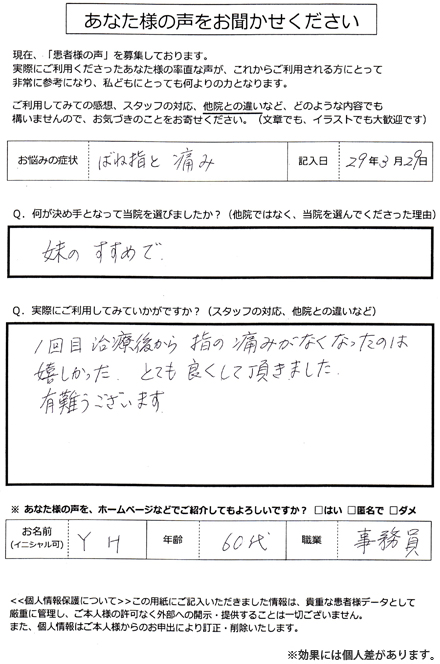 あなた様の声をお聞かせください
現在、「患者様の声」を募集しております。
実際にご利用くださったあなた様の率直な声が、これからご利用される方にとって
非常に参考になり、私どもにとっても何よりの力となります。
ご利用してみての感想、スタッフの対応、他院との違いなど、どのような内容でも
構いませんので、お気づきのことをお寄せください。（文章でも、イラストでも大歓迎です）
お悩みの症状 ばね指と 痛み 記入日 29年3月29日
Q．何が決め手となって当院を選びましたか？（他院ではなく、当院を選んでくださった理由）
妹の すすめで.
Q．実際にご利用してみていかがですか？（スタッフの対応、他院との違いなど）
1回目 治療後から 指の 痛みがなくなったのは
嬉しかった. とても 良くして頂きました.
有難うございます
※ あなた様の声を、ホームページなどでご紹介してもよろしいですか？ □はい □匿名で □ダメ
お名前 (イニシャル可) Y H 年齢 60代 職業 事務員
<<個人情報保護について>>この用紙にご記入いただきました情報は、貴重な患者様データとして
厳重に管理し、ご本人様の許可なく外部への開示・提供することは一切ございません。
また、個人情報はご本人様からのお申出により訂正・削除いたします。
※効果には個人差があります。